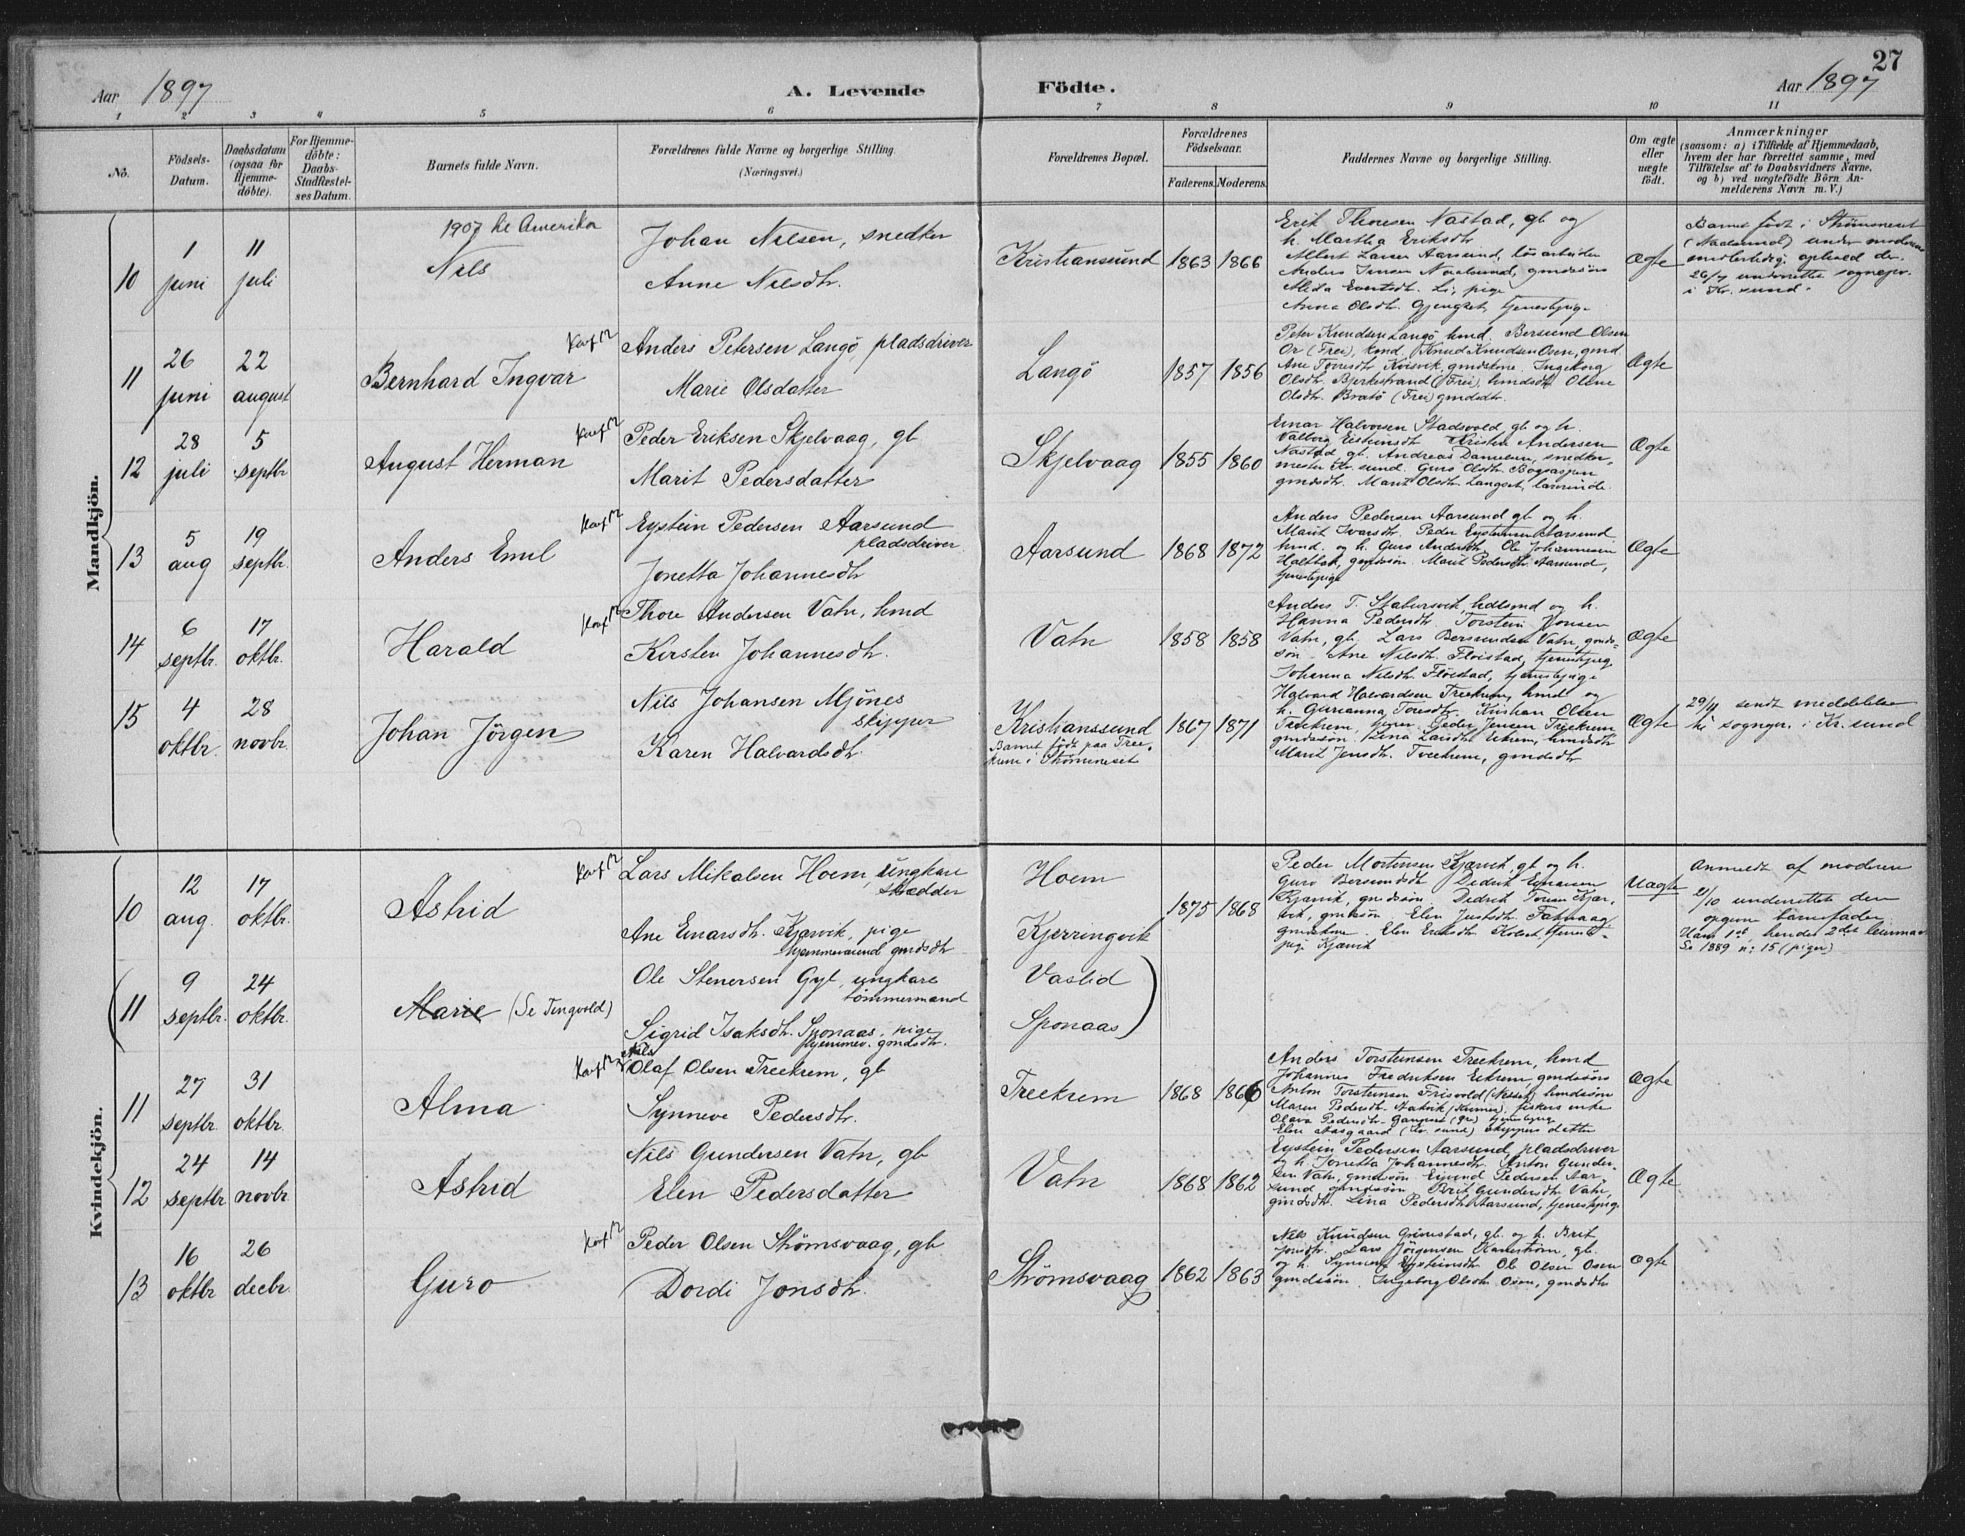 27
Aar 1897
A. Levende Födte.
Aar 1897
1 2 3 4 5 6 7 8 9 10 11
No.
Födsels-Datum.
Daabsdatum (ogsaa for Hjemme-döbte).
For Hjemme-döbte: Daabs-Stadfæstel-ses Datum.
Barnets fulde Navn.
Forældrenes fulde Navne og borgerlige Stilling.
(Næringsvei.)
Forældrenes Bopæl.
Forældrenes Födselsaar.
Faderens. Moderens.
Faddernes Navne og borgerlige Stilling.
Om ægte eller uægte født.
Anmærkninger
(saasom: a) i Tilfælde af Hjemmedaab,
hvem der har forrettet samme, med
Tilføielse af to Daabsvidners Navne,
og b) ved uægtefödte Börn An-
melderens Navn m. V.)
Mandkjön.
10
1 juni
11 juli
1907 til Amerika
Nils
Johan Nilsen, snedker
Anne Nilsdtr.
Kristiansund
1863 1866
Erik Thoresen Nastad, gb og
h. Martha Eriksdtr.
Albert Larsen Aarsund, løsarbeider
Anders Jensen Naalsund, gmdssøn
Li, pige
Anna Olsdtr. Gjengset, tjenestpige
Ægte
Barnet født i Strømsneset
(Naalsund) under moderens
midlertidig ophold der.
26/7 underrettet sognepr.
i Kr.sund.
11
26 juni
22 august
Bernhard Ingvar
Anders Petersen Langö pladsdriver
Marie Olsdatter
Langö
1857 1856
Peter Knudsen Langö kmd, Bersund Olsen
Or (Frei), kmd, Knud Knudsen Oven, gmd
Ane Torresdtr Kvisvik, gmdskone, Ingeborg
Olsdtr. Bjerkestrand (Frei), hmdsdtr Oline
Olsdtr. Bratö (Frei) gmdsdtr.
Ægte
12
28 juli
5 septbr
August Herman
Peder Eriksen Skjelvaag, gb
Marit Pedersdatter
Skjelvaag
1855 1860
Einar Halvorsen Stadsvold gb og h.
Valborg Eisteinsdtr Kristen Andersen
Nastad gb. Andreas Danielsen, snedker-
mester Kr.sund. Guro Olsdtr.
gmdsdtr. Marit Olsdtr. Langset, lærerinde.
Ægte
13
5 aug
19 septbr.
Anders Emil
Eystein Pedersen Aarsund
pladsdriver
Jonetta Johannesdtr
Aarsund
1868 1872
Anders Pedersen Aarsund gb og h.
Marit Ivarsdtr. Peder Eysteinsen Aarsund,
hmd. og h. Guro Andersdtr. Ole Johannesen
gmdssøn. Marit Pedersdtr Aarsund,
tjenestpige
Ægte
14
6 septbr.
17 oktbr.
Harald
Thore Andersen Vatn, hmd
Kirsten Johannesdtr.
Vatn
1858 1858
Anders T. Stokersvik, og h.
Hanna Pedersdtr Torstein Jonsen
Vatn, gb. Lars Bersundsen Vatn, gmds-
søn. Ane Nilsdtr. Fløistad, tjenestpige
Johanna Nilsdtr. Flöistad, tjenestpige
Ægte
15
4 oktbr.
28 novbr.
Johan Jörgen
Nils Johansen Mjönes
skipper
Karen Halvardsdtr.
Kristianssund
Barnet födt paa Tree-
krem i Strømneset
1867 1871
Halvard Halvardsen Treekrem, hmd og
h. Gurianna Toresdtr. Kristian Olsen
Treekrem, Peder Jensen Treekrem
gmdssøn Lina Larsdtr Eikrem, hmdsdtr
Marit Jensdtr. Treekrem, gmdsdtr
Ægte
29/11 sendt meddelelse
til sognepr. i Kr.sund
Kvindekjön.
10
12 aug.
17 oktbr.
Astrid
Lars Mikalsen Hoem, ungkarl
skrædder
Ane Einarsdtr. Kjærvik, pige
hjemmeværend gmdsdtr
Hoem
Kjerringvik
1875 1868
Peder Mortensen Kjærvik, gb og h.
Guro Bersundsdtr Didrik Einarsen
Kjærvik, gmdssøn. Didrik Toresen Kjær-
vik, gmdssøn. Elen Justsdtr.
gmdskone. Elen Eriksdtr. tjeneste-
pige Kjærvik
Uægte
Anmeldt af moderen
21/10 underrettet den
opgivne barnefader.
Hans 1ste hendes 2det leiermaal
Se 1889 n: 15 (piger)
11
9 septbr.
24 oktbr.
Marie (Se Tingvold)
Ole Stenersen Gyl, ungkarl
tømmermand
Sigrid Isaksdtr. Sponaas, pige
hjemmev. gmdsdtr.
Vaslid
Sponaas
11
27 septbr.
31 oktbr.
Alma
Nils
Olaf Olsen Treekrem, gb
Synneve Pedersdtr.
Treekrem
1868 1866
Anders Torsteinsen Treekrem, hmd
Johannes Fredriksen Eikrem gmdssøn
Anton Torsteinsen Frisvold (Nesset) hmdssøn
Maren Pedersdtr. fiskers enke
Olava Pedersdtr. tjenestpige
Elen Aasgaard (Kr.sund) skippers datter
Ægte
12
24 septbr
14 novbr.
Astrid
Nils Gundersen Vatn, gb
Elen Pedersdatter
Vatn
1868 1862
Eystein Pedersen Aarsund, pladsdriver
og h. Jonetta Johannesdtr. Anton Gunder-
sen Vatn, gmdssøn Eivind Pedersen Aar-
sund gmdssøn Berit Gundersdtr Vatn,
gmdsdtr. Lina Pedersdtr Aarsund, tjenestpige
Ægte
13
16 oktbr
26 decbr.
Guro
Peder Olsen Strømsvaag, gb
Dordi Jonsdtr.
Strømsvaag
1862 1863
Nils Knudsen Grimstad, gb. og h. Brit
Jonsdtr. Lars Jörgensen Kanestrøm, gb.
og h. Synnev Eysteinsdtr Ole Olsen Osen
gmdssøn. Ingeborg Olsdtr Osen, gmdsdtr
Ægte